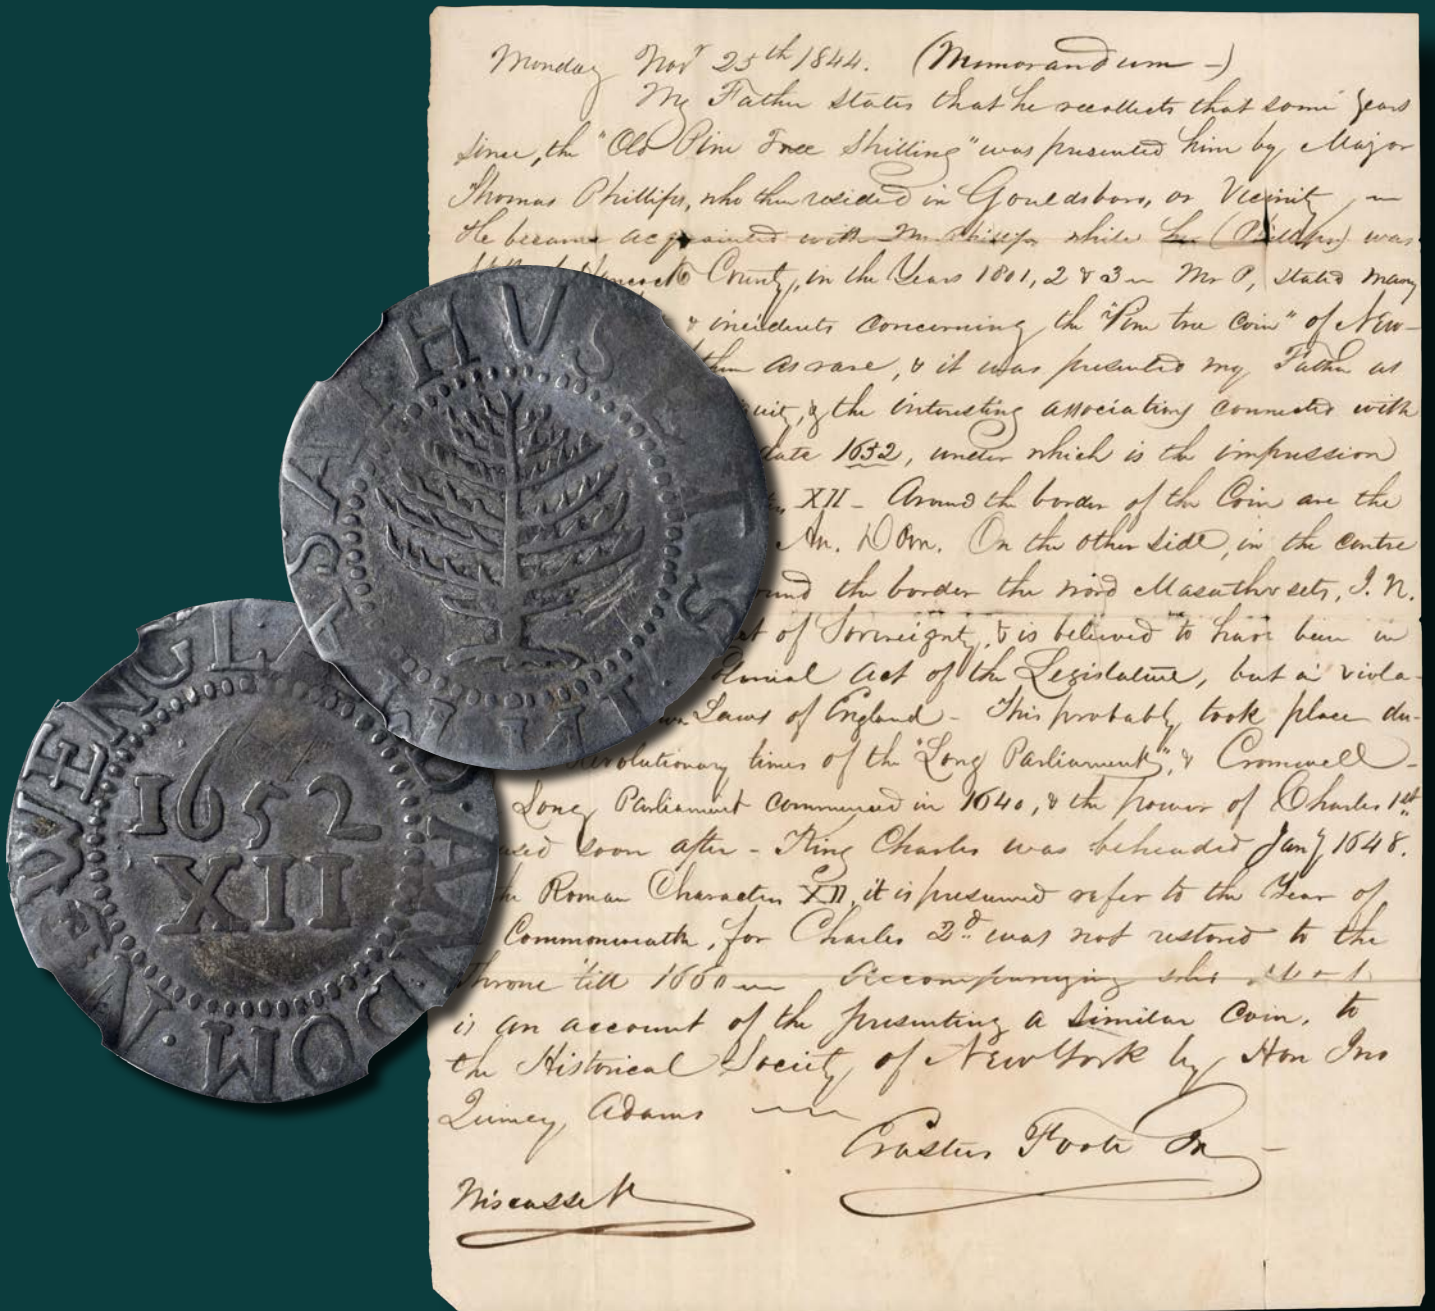 Monday Novr 25th 1844. (Memorandum -)
My Father states that he recollects that some years
since, the "Old Pine Tree Shilling" was presented him by Major
Thomas Phillips, who then resided in Gouldsboro, or Vicinity
He became acquainted with Mr Phillips while he (Phillips) was
County, in the Years 1801, 2 & 3 Mr P, stated many
& incidents concerning the "Pine tree Coin" of New-
then as rare, & it was presented my Father as
& the interesting associations connected with
date 1652, under which is the impression
XII - Around the border of the Coin are the
An. Dom. On the other side, in the centre
the border the word Masathusets, I. N.
of Sovreignty, & is believed to have been in
Act of the Legislature, but a viola-
Laws of England - This probably took place du-
times of the "Long Parliament", & Cromwell -
Long Parliament commenced in 1640, & the power of Charles 1st
soon after - King Charles was beheaded Jany 1648.
Roman Character XII, it is presumed refer to the Year of
Commonwealth, for Charles 2d. was not restored to the
throne 'till 1660 Accompanying
is an account of the presenting a similar Coin, to
the Historical Society of New York by Hon Jno
Quincy Adams
Erastus Foote Jr
Wiscasset
MASATHVSETS IN
NEWENGLAND. AN DOM
1652
XII